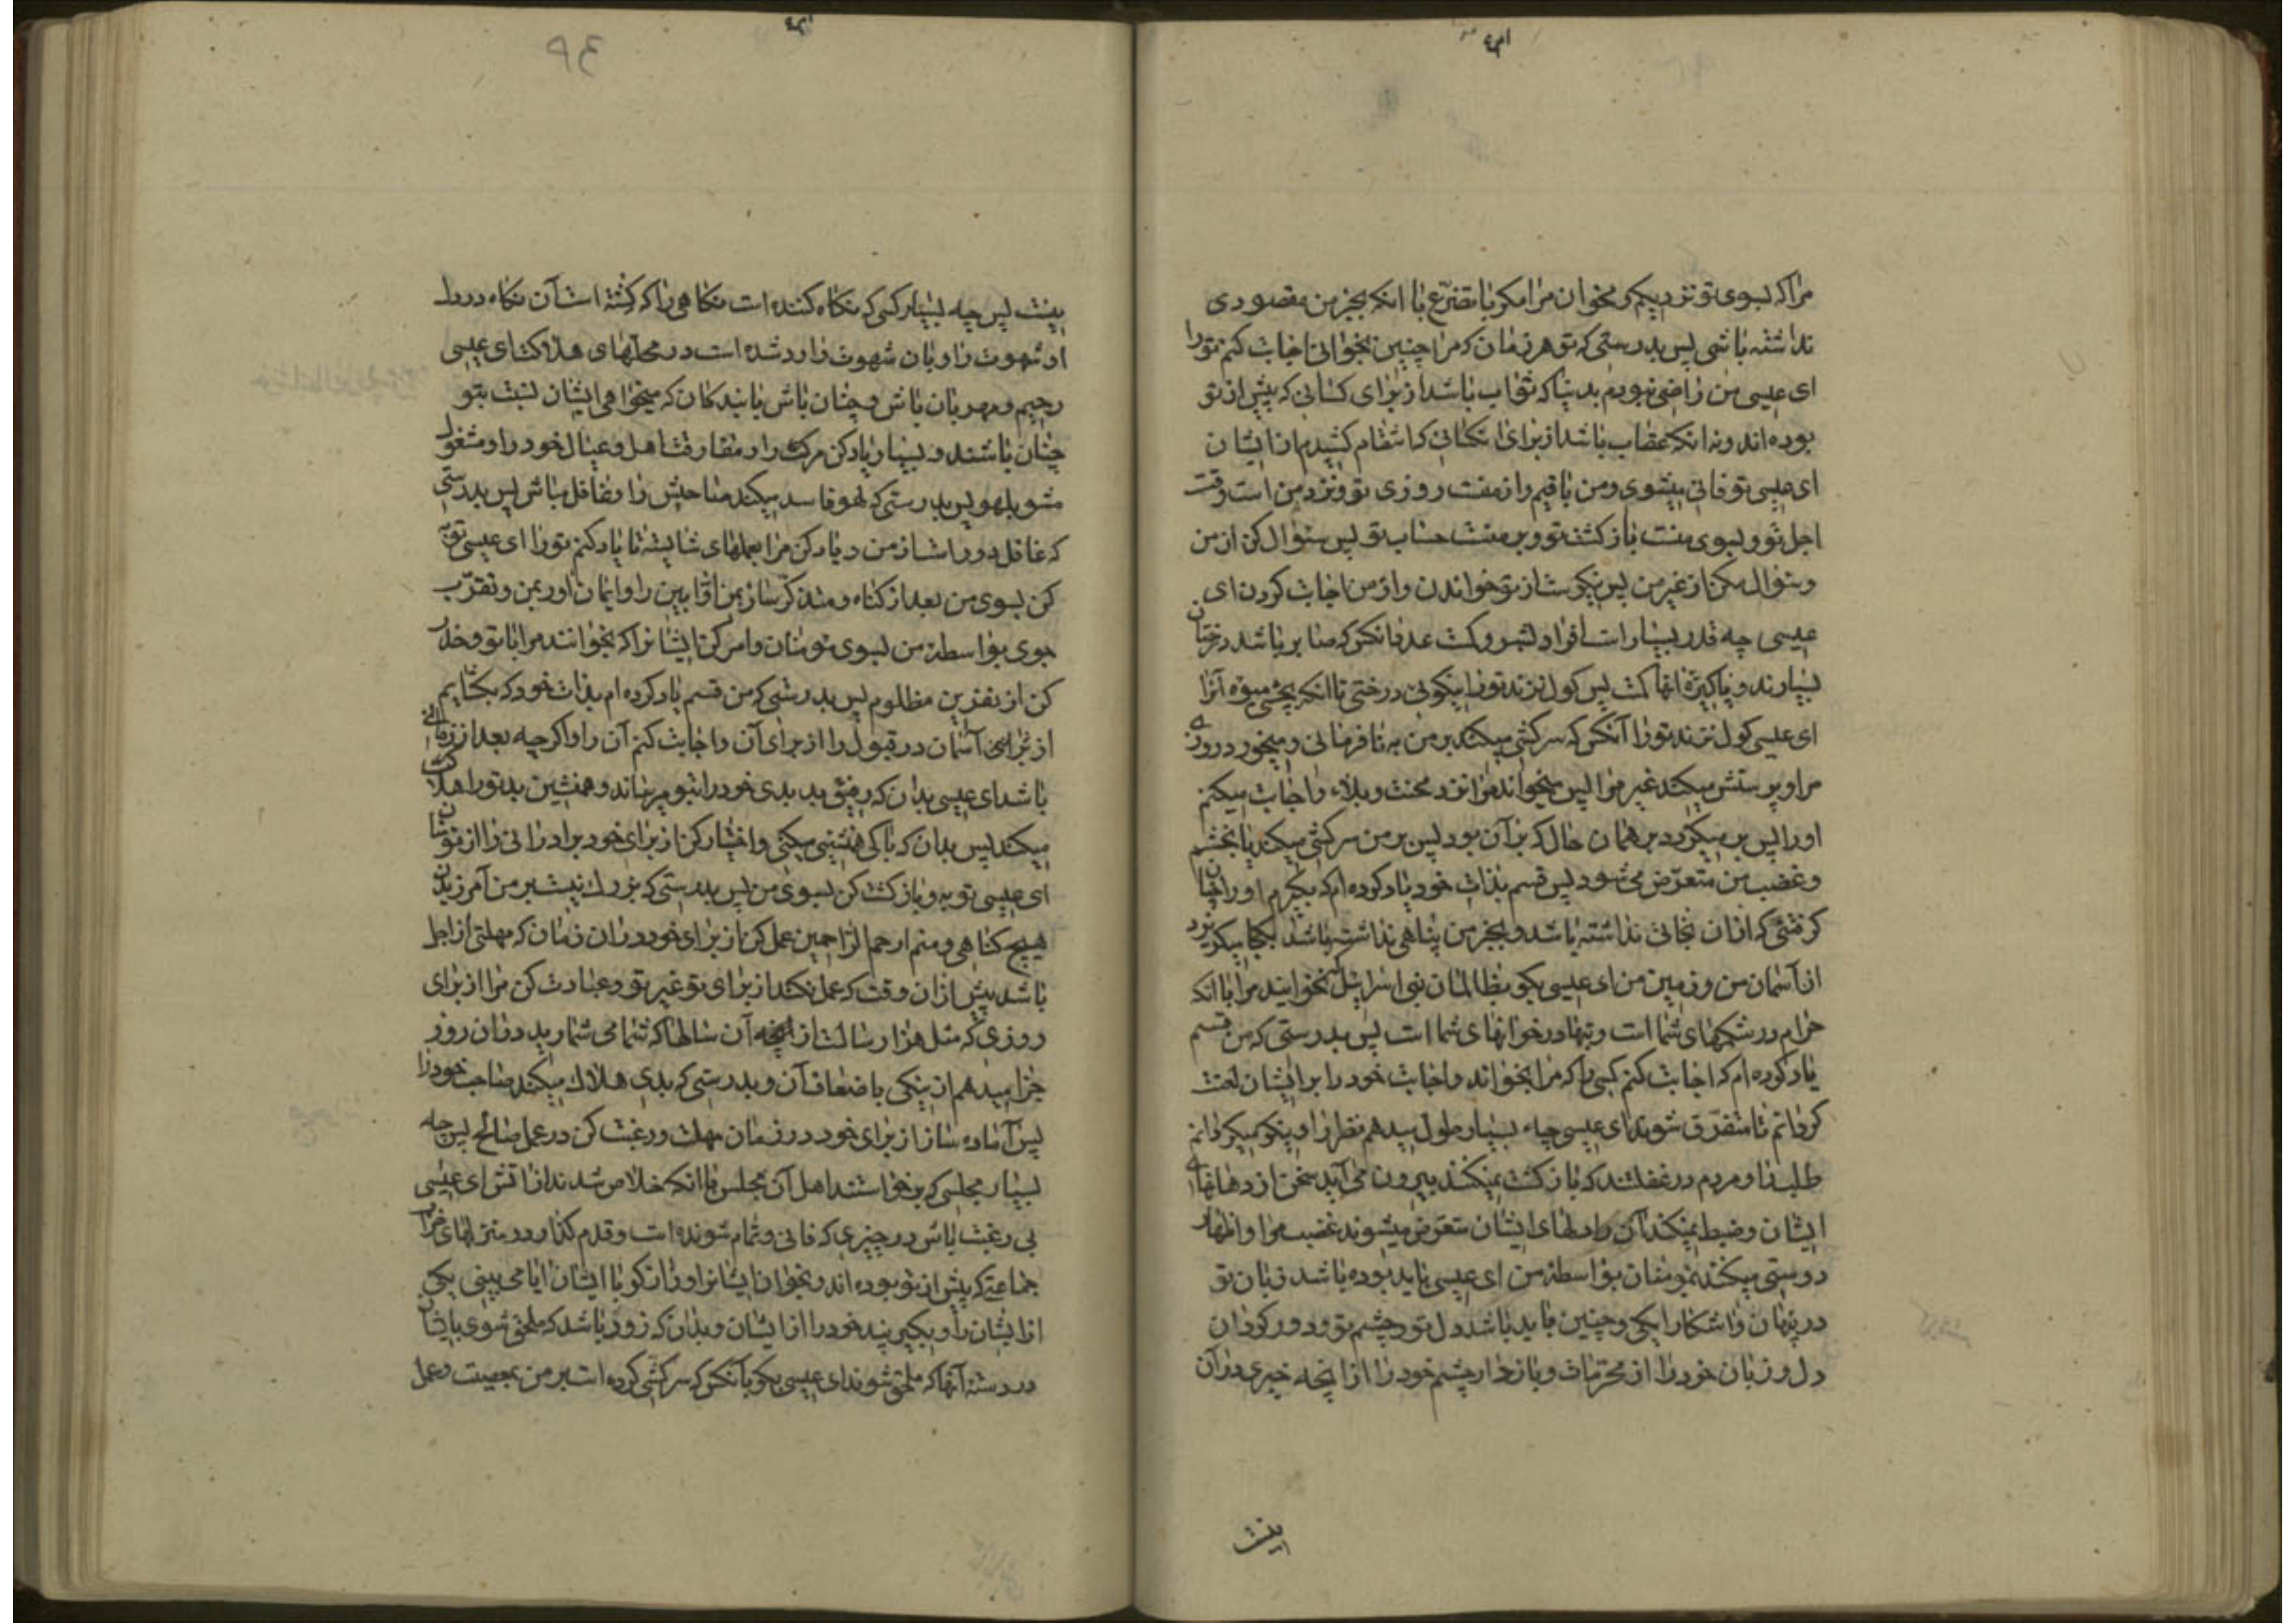 مرا که بسوی تو نزدیکم و مخوان مرا مکر با تضرّع با انکه بجز من مقصودی
نداشته باشی پس بدرستی که تو هر زمان که مرا چنین بخوانی اجابت کنم تو را
ای عیسی من راضی نبودم بدنیا که ثواب باشد از برای کسانی که پیش از تو
بوده‌اند و نه انکه عقاب باشد از برای انکسانی که انتقام کشیدم از ایشان
ای عیسی تو فانی میشوی و من باقیم و از منست روزی تو و نزد من است وقت
اجل تو و بسوی منست بازکشت تو و بر منست حساب تو پس سئوال کن از من
و سئوال مکن از غیر من پس نیکوست از تو خواندن و از من اجابت کردن ای
عیسی چه قدر بسیار است افراد بشر و کمست عدد انکس که صابر باشد درختان
بسیارند و پاکیزۀ انها کمست پس کول نزند تو را نیکوئی درختی تا انکه بچشی میوۀ آنرا
ای عیسی کول نزند تو را آنکس که سرکشی میکند بر من به نافرمانی و میخورد روزی
مرا و پرستش میکند غیر مرا پس میخواند مرا نزد محنت و بلاء و اجابت میکنم
او را پس بر میکردد بر همان حال که بر آن بود پس بر من سرکشی میکند یا بخشم
و غضب من متعرّض می‌شود پس قسم بذات خود یاد کرده‌ام که بکیرم او را چنان
کرفتنی که از ان نجاتی نداشته باشد و بجز من پناهی نداشته باشد بکجا میکریزد
از آسمان من و زمین من ای عیسی بکو بظالمان بنی اسرائیل نخوانید مرا با انکه
حرام در شکمهای شما است و بتها در خوانهای شما است پس بدرستی که من قسم
یاد کرده‌ام که اجابت کنم کسی را که مرا بخواند و اجابت خود را بر ایشان لعنت
کردانم تا متفرّق شوند ای عیسی چه بسیار طول میدهم نظر را و نیکو میکردانم
طلب را و مردم در غفلتند که بازکشت نمیکنند بیرون می‌آید سخن از دهانهای
ایشان و ضبط نمیکند آن را دلهای ایشان متعرّض میشوند غضب مرا و اظهار
دوستی میکنند بمومنان بواسطۀ من ای عیسی باید بوده باشد زبان تو
در پنهان و اشکارا یکی و چنین باید باشد دل تو و چشم تو و دور کردان
دل و زبان خود را از محرّمات و باز دار چشم خود را از انچه خیری در آن
نیست
نیست پس چه بسیار کسی که نکاه کننده است نکاهی را که کشته است آن نکاه در دل
او شهوت را و بان شهوت وارد شده است در محلهای هلاکت ای عیسی
رحیم و مهربان باش و چنان باش با بندکان که میخواهی ایشان نسبت بتو
چنان باشند و بسیار یاد کن مرک را و مفارقت اهل و عیال خود را و مشغول
مشو بلهو پس بدرستی که لهو فاسد میکند صاحبش را و غافل مباش پس بدرستی
که غافل دور است از من و یاد کن مرا بعملهای شایسته تا یاد کنم تو را ای عیسی توبه
کن بسوی من بعد از کناه و متذکّر ساز بمن اوّابین را و ایمان اور بمن و تقرّب
جوی بواسطۀ من بسوی مومنان و امر کن ایشانرا که بخوانند مرا با تو و حذر
کن از نفرین مظلوم پس بدرستی که من قسم یاد کرده‌ام بذات خود که بکشایم
از برای آسمان در قبول را از برای آن و اجابت کنم آن را و اکرچه بعد از زمانی
باشد ای عیسی بدان که رفیق بد بدی خود را بتو میرساند و همنشین بد تو را هلاک
میکند پس بدان که با کی همنشینی میکنی و اختیار کن از برای خود برادرانی را از مومنان
ای عیسی توبه و بازکشت کن بسوی من پس بدرستی که بزرک نیست بر من آمرزیدن
هیچ کناهی و منم ارحم الراحمین عمل کن از برای خود در ان زمان که مهلتی از اجل
باشد پیش از ان وقت که عمل نکند از برای تو غیر تو و عبادت کن مرا از برای
روزی که مثل هزار سالست از انچه آن سالها که شما می‌شمارید در ان روز
جزا میدهم از نیکی باضعاف آن و بدرستی که بدی هلاک میکند صاحب خود را
پس آماده ساز از برای خود در زمان مهلت و رغبت کن در عمل صالح پس چه
بسیار مجلسی که برخواستند اهل آن مجلس با انکه خلاص شدند از اتش ای عیسی
بی رغبت باش در چیزی که فانی و تمام شونده است و قدم کذار در منزلهای
جماعتی که پیش از تو بوده‌اند و بخوان ایشانرا و راز کو با ایشان ایا می بینی یکی
از ایشان را و بکیر پند خود را از ایشان و بدان که زود باشد که ملحق شوی بایشان
در دستۀ آنها که ملحق شوند ای عیسی بکو بآنکس که سرکشی کرده است بر من بمعصیت و عمل